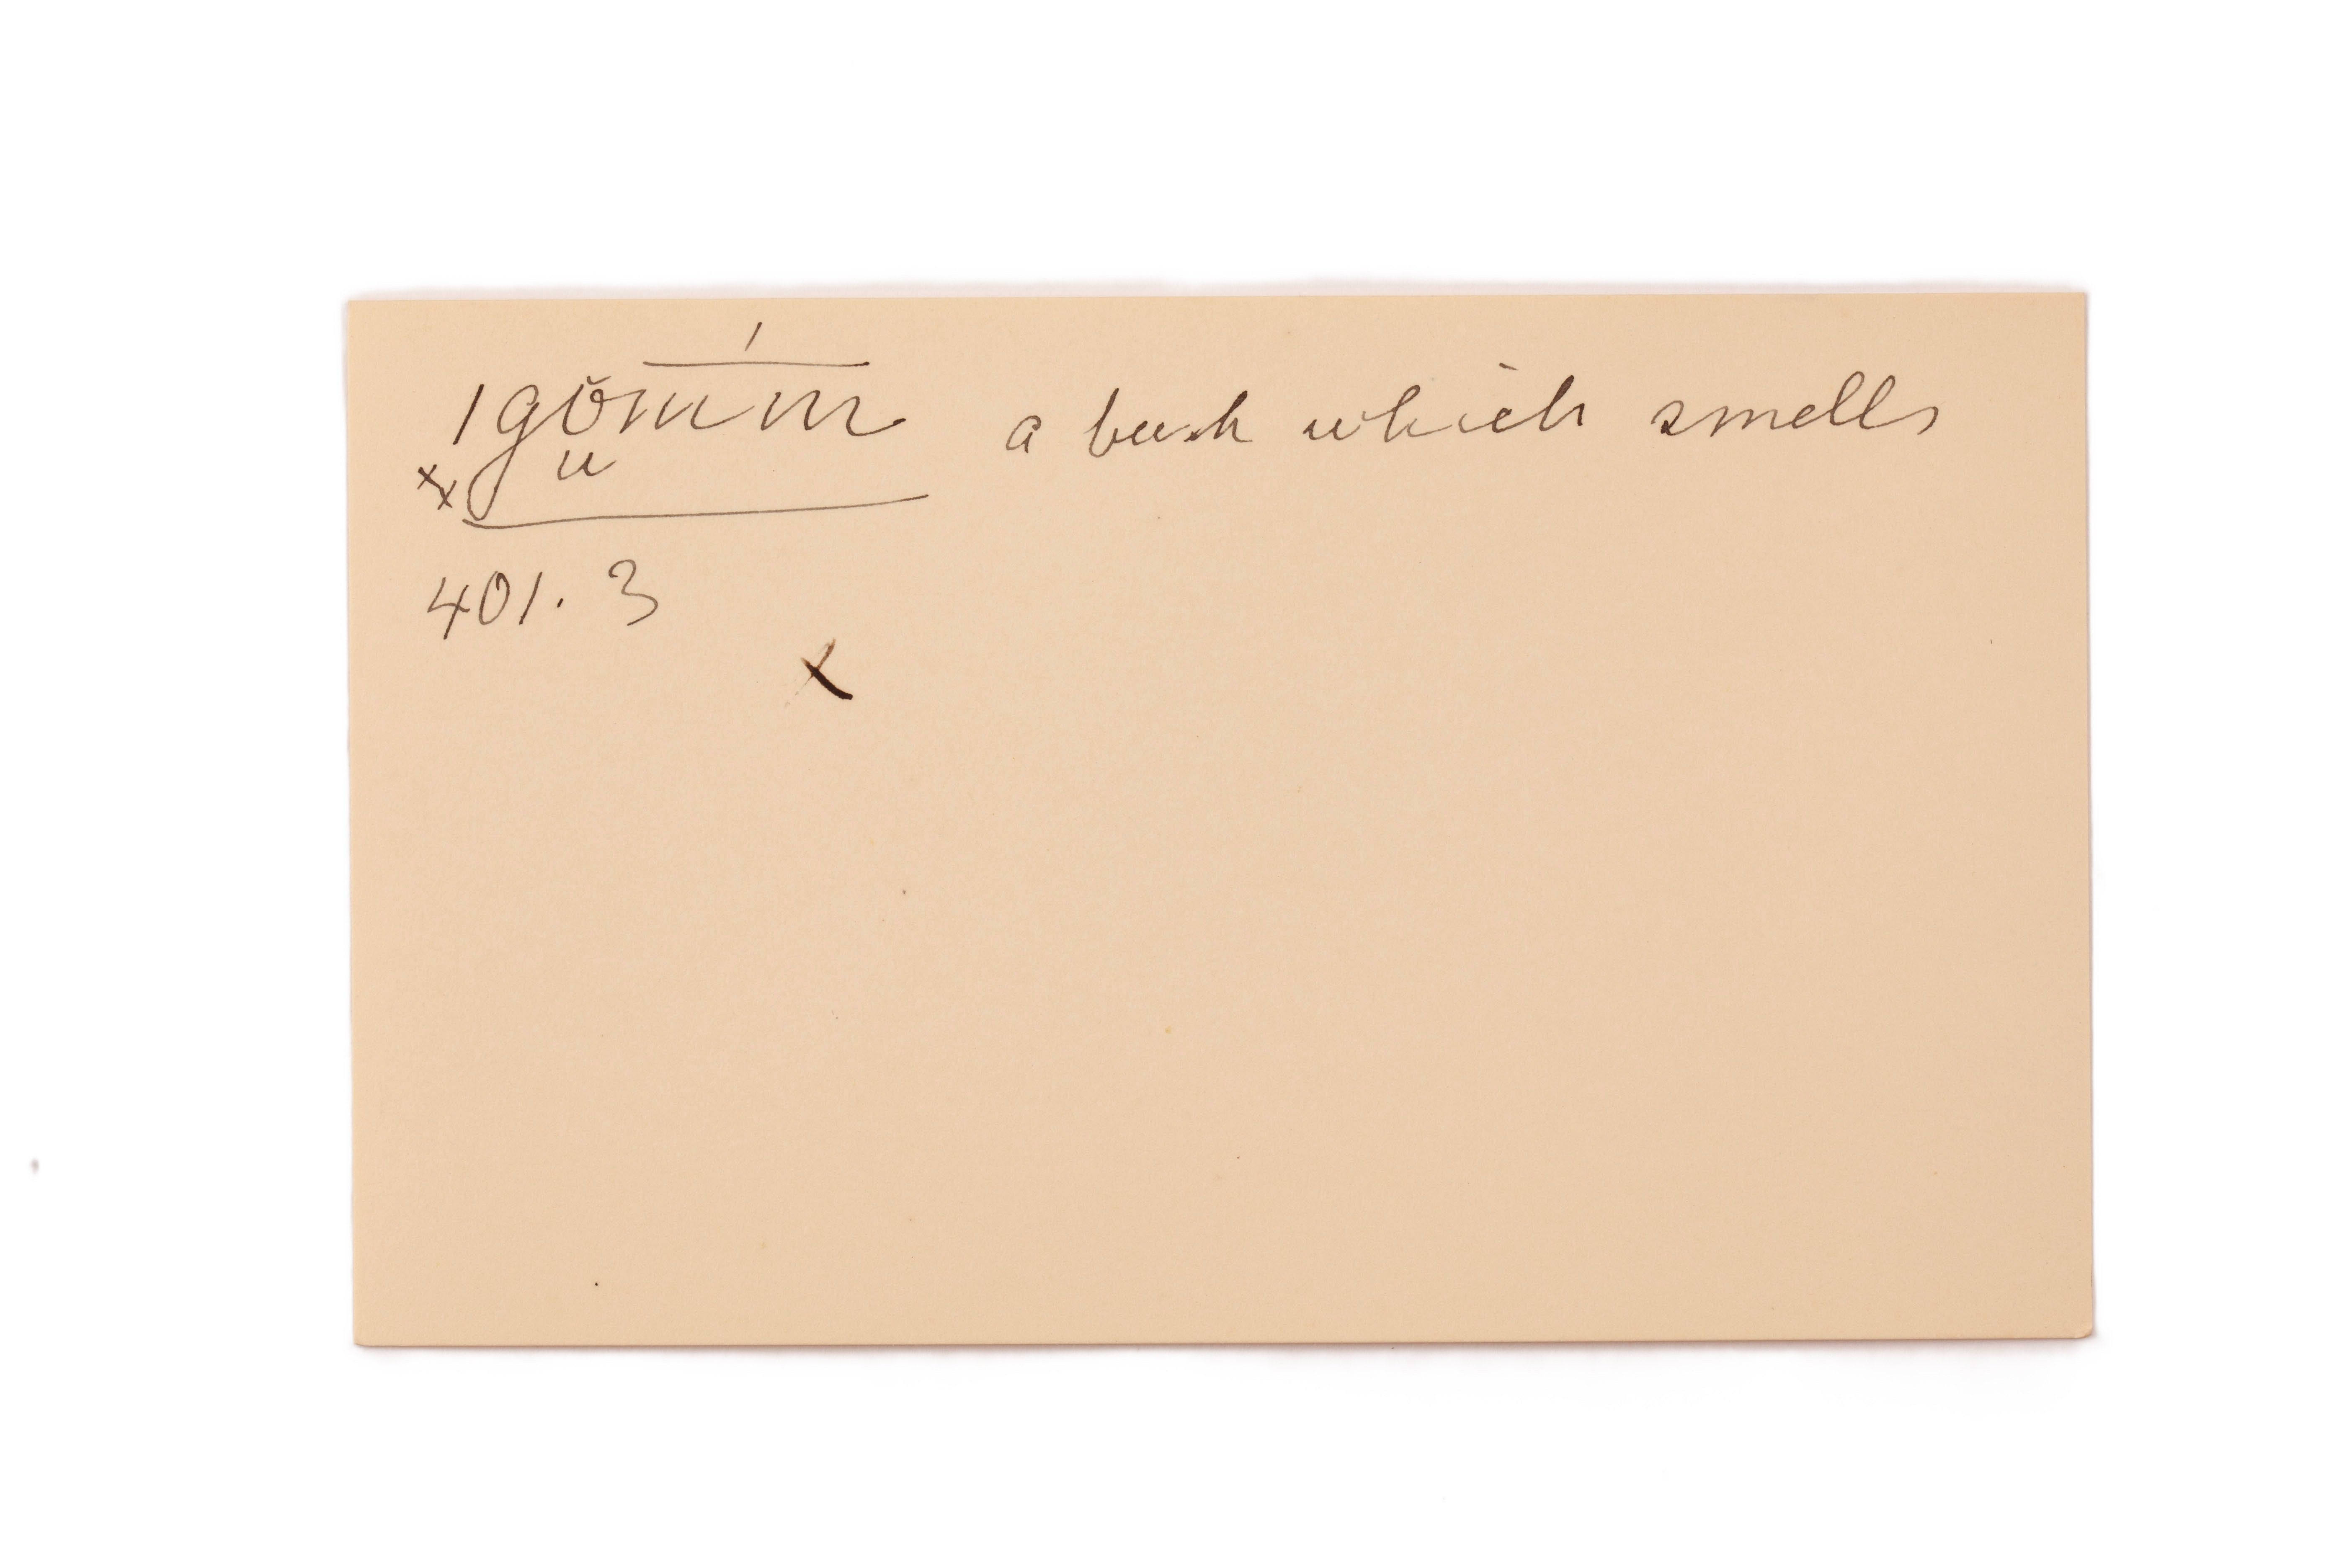 /gŏm̄́m̄ a bush which smells
xx u
401. 3
x